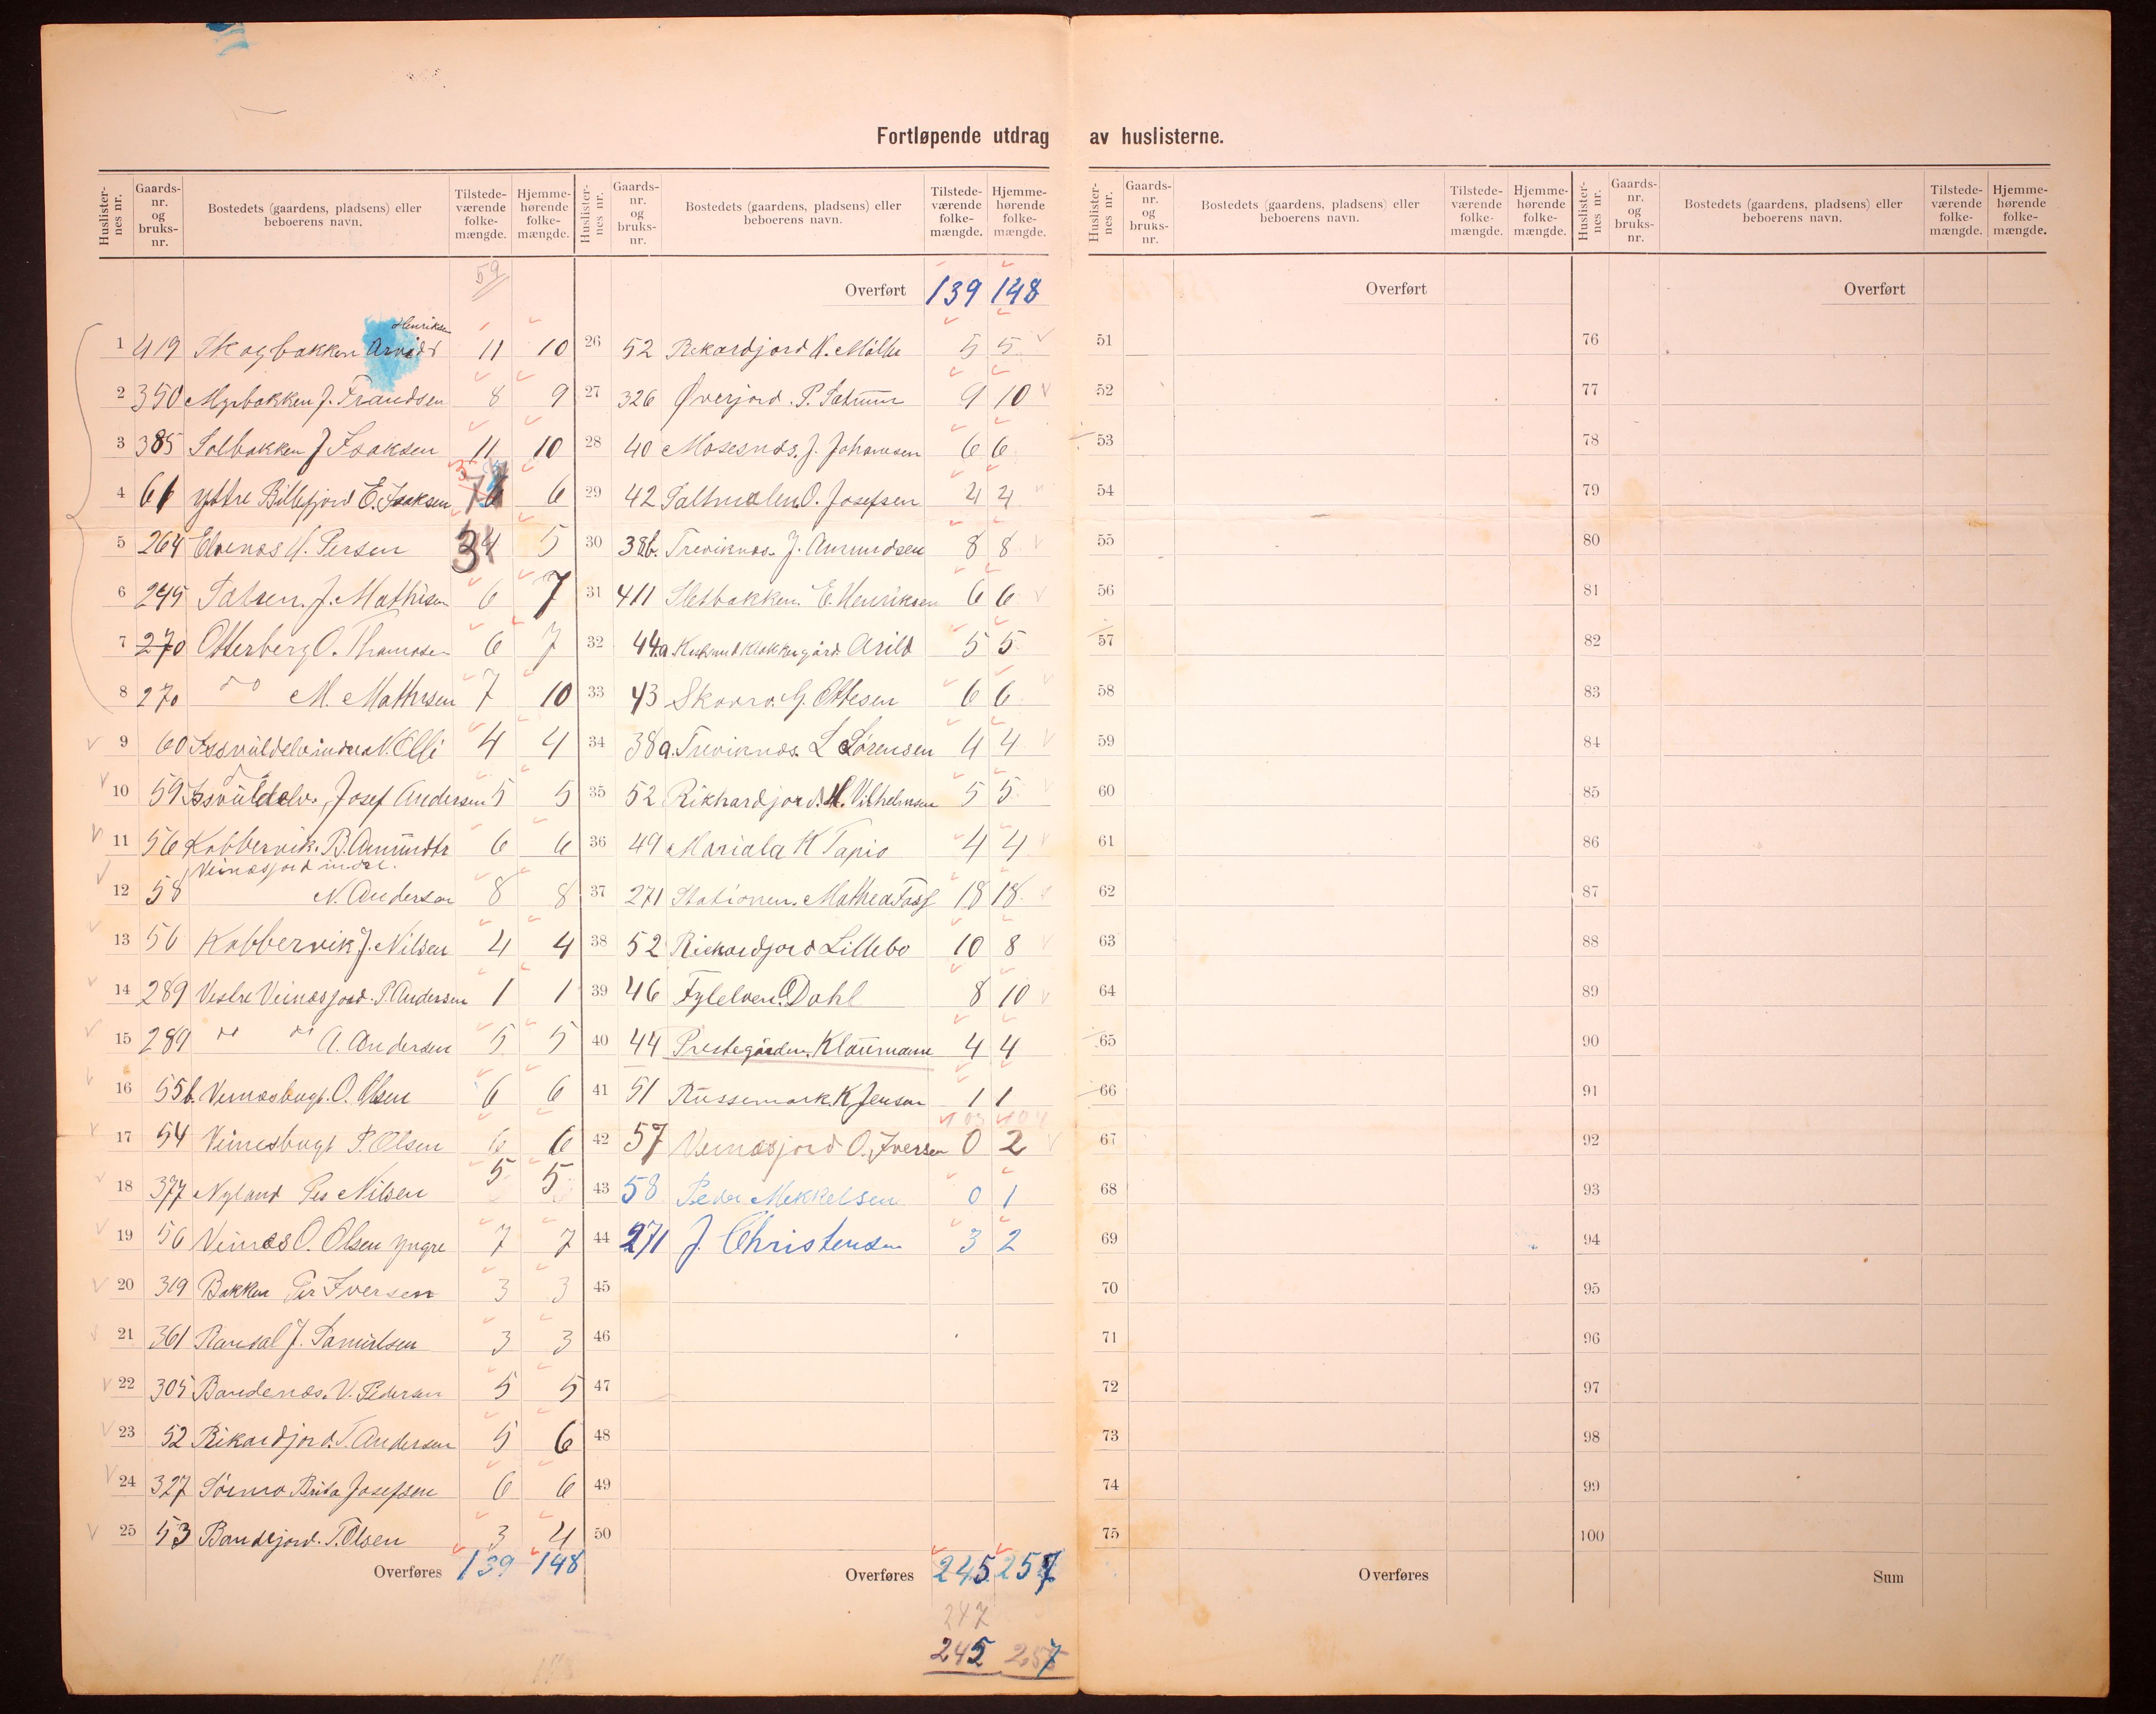 Fortløpende utdrag av huslisterne.
Huslister-nes nr. Gaards-nr. og bruks-nr. Bostedets (gaardens, pladsens) eller beboerens navn. Tilstede-værende folke-mængde. Hjemme-hørende folke-mængde.
59
Henriksen
1 419 Skogbakken Arvid 11 10
2 350 Myrbakken J. Frandsen 8 9
3 385 Solbakken J Isaksen 11 10
4 61 Yttre Billefjord E. Isaksen 6
5 264 Elvenes N. Persen 34 5
6 245 J. Mathisen 6 7
7 270 Otterberg O. Thomasen 6 7
8 270 do M. Mathisen 7 10
9 60 N. Olli 4 4
10 59 Josef Andersen 5 5
11 56 Kobbervik. B. 6 6
Veinesjord indre.
12 58 N. Andersen 8 8
13 56 Kobbervik J. Nilsen 4 4
14 289 Vestre Veinesjord. P. Andersen 1 1
15 289 do do A. Andersen 5 5
16 55b. Veinesbugt. O. Olsen 6 6
17 54 Veinesbugt P. Olsen 6 6
18 377 Nyland Per Nilsen 5 5
19 56 Veines O. Olsen yngre 7 7
20 319 Bakken Per Iversen 3 3
21 361 J. Samuelsen 3 3
22 305 V. Pedersen 5 5
23 52 Rikardjord. T. Andersen 5 6
24 327 Sörmo Brita Josefsen 6 6
25 53 T. Olsen 3 4
Overføres 139 148
Huslister-nes nr. Gaards-nr. og bruks-nr. Bostedets (gaardens, pladsens) eller beboerens navn. Tilstede-værende folke-mængde. Hjemme-hørende folke-mængde.
Overført 139 148
26 52 Rikardjord N. 5 5
27 326 Øverjord. P. 9 10
28 40 Mosesnes. J. Johansen 6 6
29 42 O. Josefsen 4 4
30 38b. Treviknes. J. Amundsen 8 8
31 411 Sletbakken. E. Henriksen 6 6
32 44a Klokkergård Arild 5 5
33 43 Skovro. G. Ottesen 6 6
34 38a. Treviknes. L Lörensen 4 4
35 52 Rikhardjord. H. Vilhelmsen 5 5
36 49 Mariala K Tapio 4 4
37 271 Stationen. Mathea 18 18
38 52 Rickardjord Lillebo 10 8
39 46 Fylelven. O Dahl 8 10
40 44 Prestegården. Klaumann 4 4
41 51 Russemark. K Jensen 1 1
103 104
42 57 Veinesjord O. Iversen 0 2
43 58 Peder Mekkelsen 0 1
44 271 J. Christensen 3 2
45
46
47
48
49
50
Overføres 245 257
247
245 257
Huslister-nes nr. Gaards-nr. og bruks-nr. Bostedets (gaardens, pladsens) eller beboerens navn. Tilstede-værende folke-mængde. Hjemme-hørende folke-mængde.
Overført
51
52
53
54
55
56
57
58
59
60
61
62
63
64
65
66
67
68
69
70
71
72
73
74
75
Overføres
Huslister-nes nr. Gaards-nr. og bruks-nr. Bostedets (gaardens, pladsens) eller beboerens navn. Tilstede-værende folke-mængde. Hjemme-hørende folke-mængde.
Overført
76
77
78
79
80
81
82
83
84
85
86
87
88
89
90
91
92
93
94
95
96
97
98
99
100
Sum